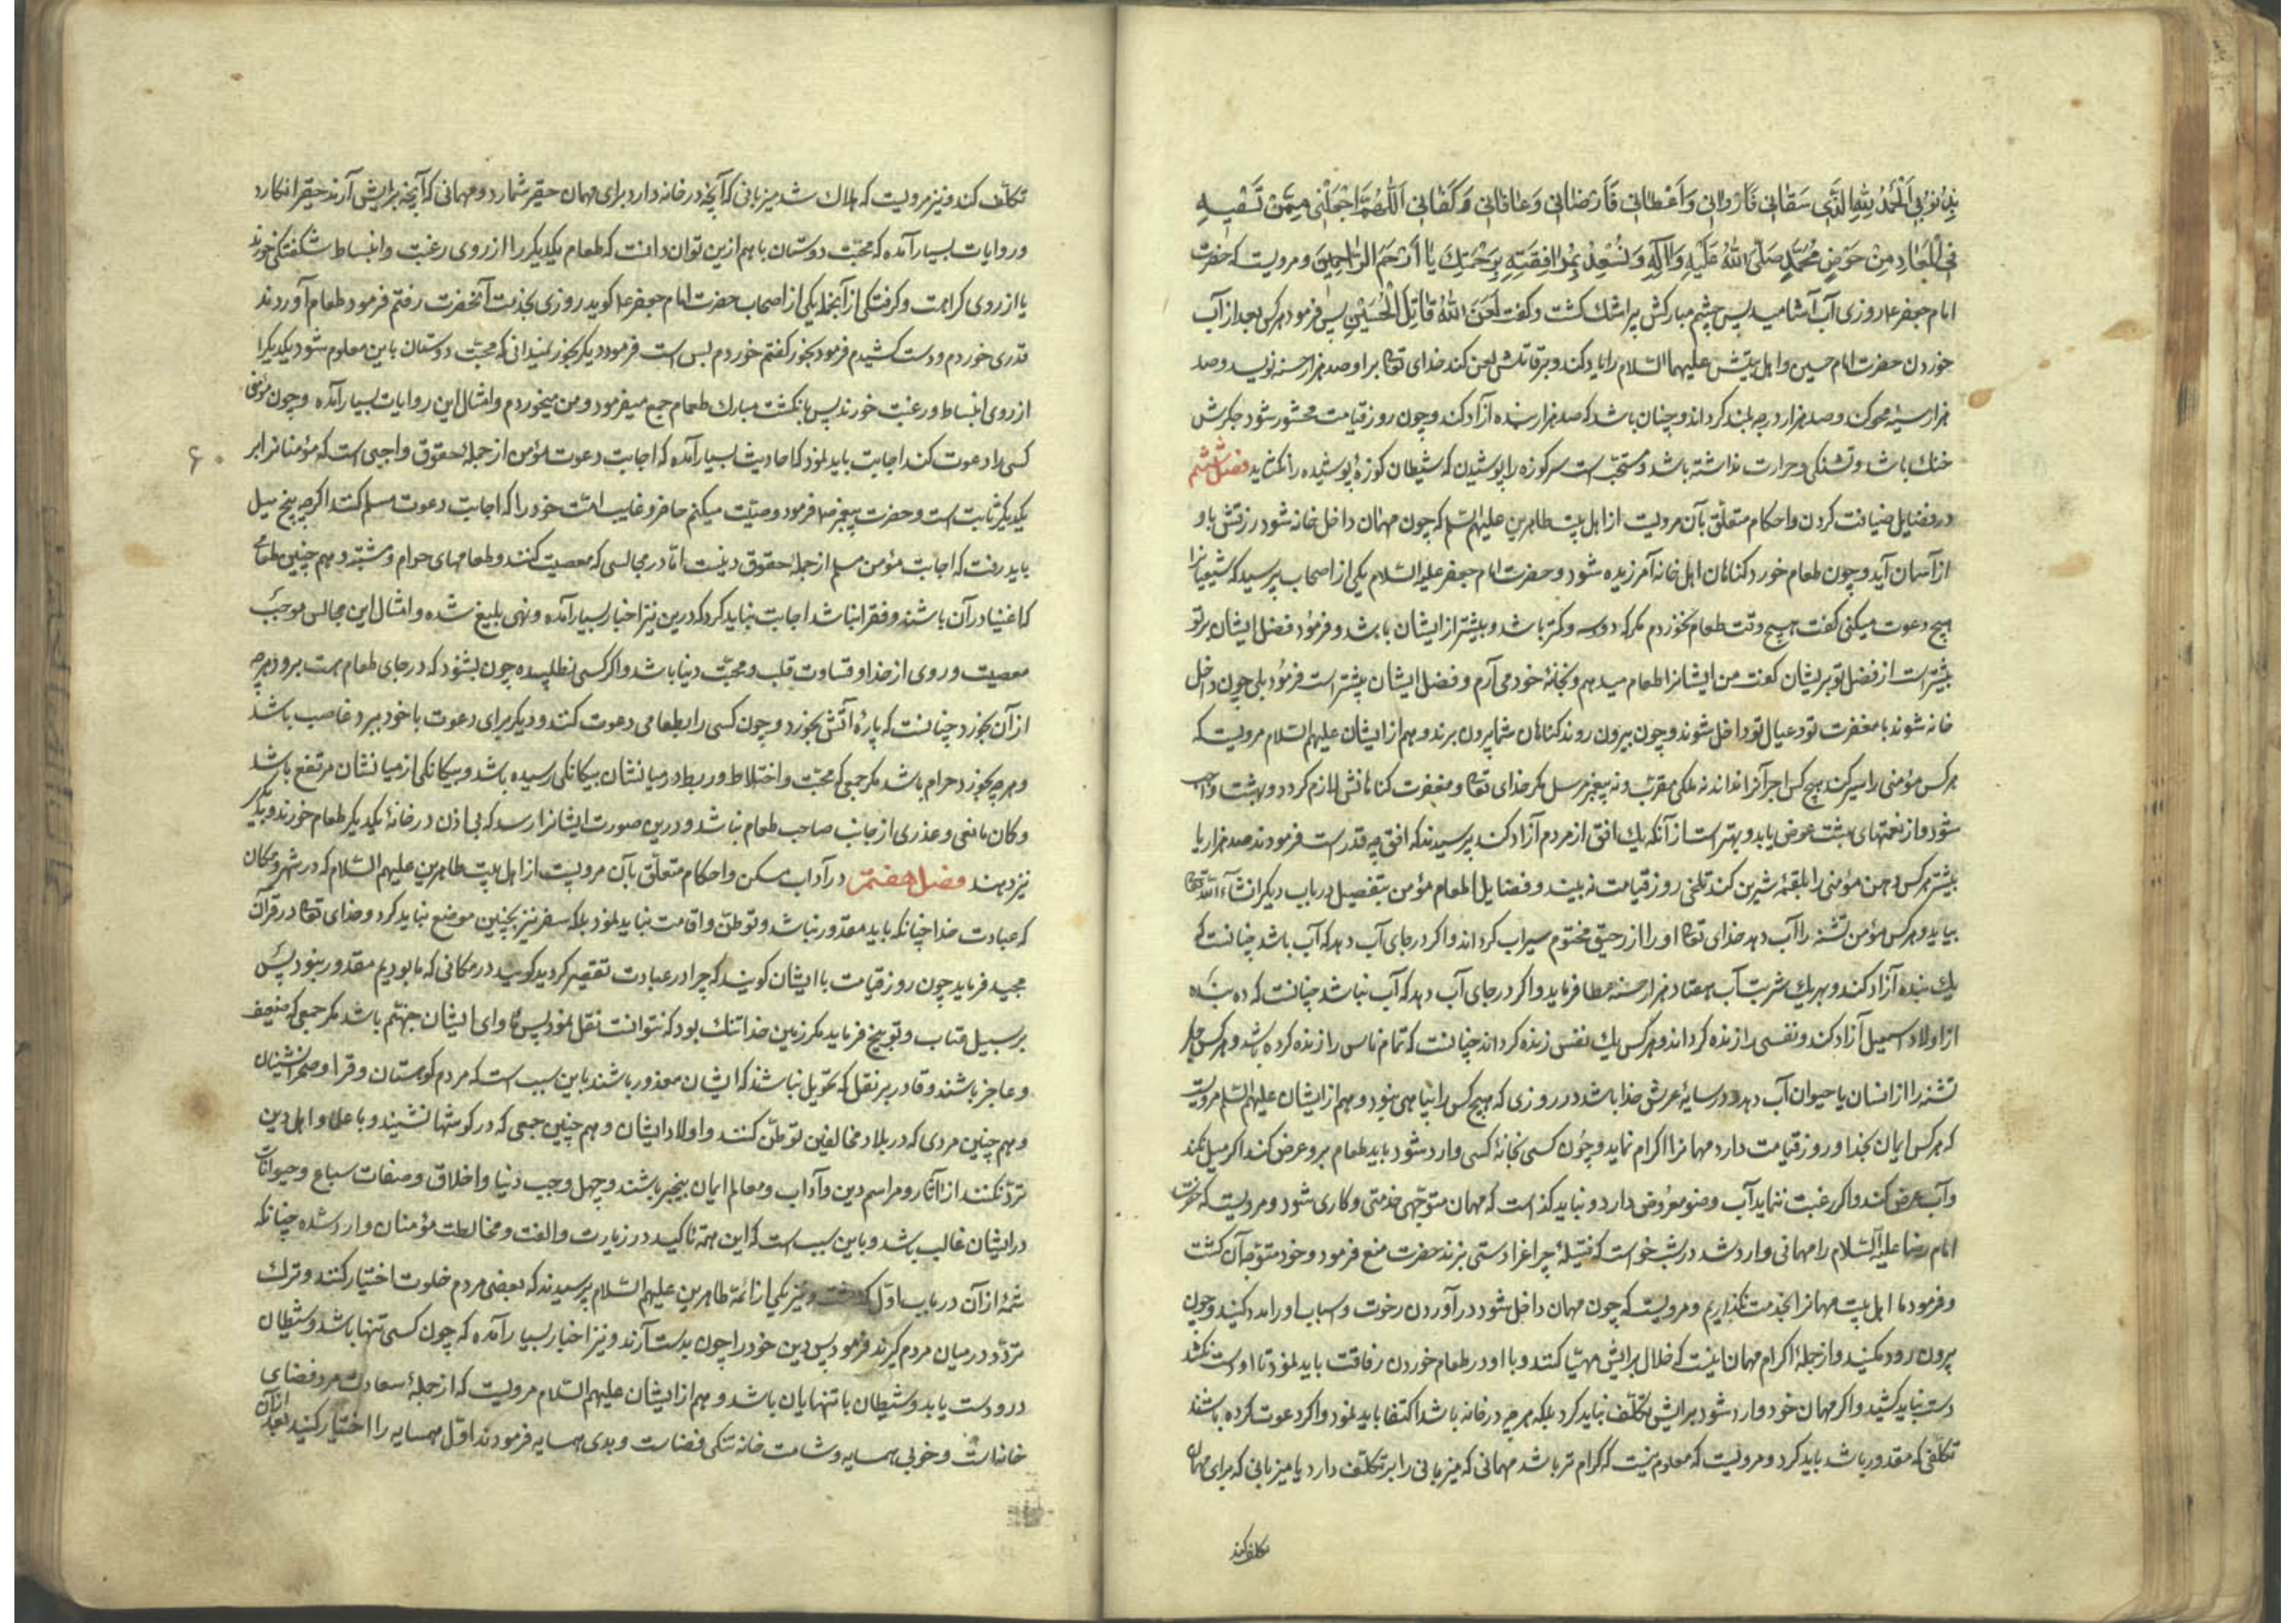 بذنوبی اَلْحَمْدُ لِلّٰهِ الَّذی سَقانی فَاَرْوانی وَاَعْطانی فَاَرْضانی وَعافانی وَکَفانی اَللّٰهُمَّ اجْعَلْنی مِمَّنْ تَسْقیهِ
فِی الْمَعادِ مِنْ حَوْضِ مُحَمَّدٍ صَلَّی اللّٰهُ عَلَیْهِ وَآلِهِ وَتُسْعِدُ بِمُرافَقَتِهِ بِرَحْمَتِكَ یا اَرْحَمَ الرّاحِمینَ و مرویست که حضرت
امام جعفر ع روزی آب آشامید پس چشم مبارکش پر اشك کشت و کفت لَعَنَ اللّٰهُ قاتِلَ الْحُسَیْنِ پس فرمود هرکس بعد از آب
خوردن حضرت امام حسین و اهل بیتش علیهما السلام را یاد کند و بر قاتلش لعن کند خدای تعا برای او صد هزار حسنه نویسد و صد
هزار سیئه محو کند و صد هزار درجه بلند کرداند و چنان باشد که صد هزار بنده آزاد کند و چون روز قیامت محشور شود جکرش
خنك باشد و تشنکی و حرارت نداشته باشد و مستحبّ است سر کوزه را پوشیدن که شیطان کوزهٔ پوشیده را نکشاید فصل ششم
در فضایل ضیافت کردن و احکام متعلّق بآن مرویست از اهل بیت طاهرین علیهم السلم که چون مهمان داخل خانه شود رزقش با او
از آسمان آید و چون طعام خورد کناهان اهل خانه آمرزیده شود و حضرت امام جعفر علیه السلام یکی از اصحاب پرسید که شیعیانرا
هیچ دعوت میکنی کفت هیچ وقت طعام نخوردم مکر که دو سه و کمتر باشد و بیشتر از ایشان با من باشد و فرمود فضل ایشان بر تو
بیشتر است از فضل تو بر ایشان کفت من ایشانرا طعام میدهم و بخانهٔ خود می آرم و فضل ایشان بیشتر است فرمود بلی چون داخل
خانه شوند با مغفرت تو و عیال تو داخل شوند و چون بیرون روند کناهان شما بیرون برند و هم از ایشان علیهم السلام مرویست که
هرکس مؤمنی را سیر کند هیچ کس اجر آنرا نداند نه ملکی مقرّب و نه پیغمبر مرسل مکر خدای تعا و مغفرت کناهانش لازم کردد و بهشت واجب
شود و از نعمتهای بهشت عوض یابد و بهتر است از آنکه یك افق از مردم آزاد کند پرسیدند که افق چه قدر است فرمودند صد هزار یا
بیشتر هرکس دهن مؤمنی را بلقمهٔ شیرین کند تلخی روز قیامت نه بیند و فضایل اطعام مؤمن بتفصیل در باب دیکر انشآء الله تعا
بیاید و هرکس مؤمن تشنه را آب دهد خدای تعا او را از رحیق مختوم سیراب کرداند و اکر در جای آب دهد که آب باشد چنانست که
یك بنده آزاد کند و بهر یك شربت آب هفتاد هزار حسنه عطا فرماید و اکر در جای آب دهد که آب نباشد چنانست که ده بنده
از اولاد اسمعیل آزاد کند و نفسی را زنده کرداند و هرکس یك نفس زنده کرداند چنانست که تمام ناس را زنده کرده باشد و هرکس جکر
تشنه را از انسان یا حیوان آب دهد در سایهٔ عرش خدا باشد در روزی که هیچ کس را پناهی نبود و هم از ایشان علیهم السلم مرویست
که هرکس ایمان بخدا و روز قیامت دارد مهمانرا اکرام نماید و چون کسی بخانهٔ کسی وارد شود باید طعام برو عرض کند اکر میل نکند
و آب عرض کند و اکر رغبت ننماید آب وضو معروض دارد و نباید کذاست که مهمان متوجّهی خدمتی و کاری شود و مرویست که حضرت
امام رضا علیه السلام را مهمانی وارد شد در شب خواست که فتیلهٔ چراغرا دستی بزند حضرت منع فرمود و خود متوجّه آن کشت
و فرمود ما اهل بیت مهمانرا بخدمت نکذاریم و مرویست که چون مهمان داخل شود در آوردن رخوت و اسباب او را مدد کنید و چون
بیرون رود مکنید و از جملهٔ اکرام مهمان اینست که خلال برایش مهیّا کنند و با او در طعام خوردن رفاقت باید نمود تا او دست نکشد
دست نباید کشید و اکر مهمان خود وارد شود برایش تکلّف نباید کرد بلکه هر چه در خانه باشد اکتفا باید نمود و اکر دعوت کرده باشند
تکلّفی که مقدور باشد باید کرد و مرویست که معلوم نیست که کرام تر باشد مهمانی که میزبانی را بر تکلّف دارد یا میزبانی که برای مهمان
تکلف کند
تکلّف کند و نیز مرویست که هلاك شد میزبانی که آنچه در خانه دارد برای مهمان حقیر شمارد و مهمانی که آنچه برایش آرند حقیر انکارد
و روایات بسیار آمده که محبّت دوستان با هم ازین توان دانست که طعام یکدیکر را از روی رغبت و انبساط و شکفتکی خورند
یا از روی کراهت و کرفتکی از آنجمله یکی از اصحاب حضرت امام جعفر ع کوید روزی بخدمت آنحضرت رفتم فرمود طعام آوردند
قدری خوردم و دست کشیدم فرمود بخور کفتم خوردم بس است فرمود دیکر بخور نمیدانی که محبّت دوستان باین معلوم شود یکدیکر را
از روی انبساط و رغبت خورند پس بانکشت مبارك طعام جمع میفرمود و من میخوردم و امثال این روایات بسیار آمده و چون مؤمنی
کسی را دعوت کند اجابت باید نمود که احادیث بسیار آمده که اجابت دعوت مؤمن از جملهٔ حقوق واجبی است که مؤمنانرا بر
۶۰
یکدیکر ثابت است و حضرت پیغمبر ص فرمود وصیّت میکنم حاضر و غایب امّت خود را که اجابت دعوت مسلم کند اکر چه پنج میل
باید رفت که اجابت مؤمن مسلم از جملهٔ حقوق دینست امّا در مجالسی که معصیت کنند و طعامهای حرام و مشتبه و هم چنین طعامی
که اغنیا در آن باشند و فقرا نباشد اجابت نباید کرد که درین نیز اخبار بسیار آمده و نهی بلیغ شده و امثال این مجالس موجب
معصیت و روی از خدا و قساوت قلب و محبّت دنیا باشد و اکر کسی نطلبیده چون بشنود که در جای طعام هست برود هر چه
از آن بخورد چنانست که پارهٔ آتش بخورد و چون کسی را بطعامی دعوت کنند و دیکر برای دعوت با خود ببرد غاصب باشد
و هر چه بخورد حرام باشد مکر جمعی که محبّت و اختلاط و ربط در میانشان بیکانکی رسیده باشد و بیکانکی از میانشان مرتفع باشد
و کان مانعی و عذری از جانب صاحب طعام نباشد و درین صورت ایشانرا رسد که بی اذن در خانهٔ یکدیکر طعام خورند و بدیکر
نیز دهند فصل هفتم در آداب مسکن و احکام متعلّق بآن مرویست از اهل بیت طاهرین علیهم السلام که در شهر و مکان
که عبادت خدا چنانکه باید مقدور نباشد و توطّن و اقامت نباید نمود بلکه سفر نیز بچنین موضع نباید کرد و خدای تعا در قرآن
مجید فرماید چون روز قیامت با ایشان کویند که چرا در عبادت تقصیر کردید کویند در مکانی که ما بودیم مقدور نبود پس
بر سبیل عتاب و توبیخ فرماید مکر زمین خدا تنك بود که نتوانست نقل نمود پس مأوای ایشان جهنّم باشد مکر جمعی که ضعیف
و عاجز باشند و قادر بر نقل که تحویل نباشد که ایشان معذور باشند باین سبب است که مردم کوهستان و قرا و صحرا نشینان
و هم چنین مردی که در بلاد مخالفین توطّن کنند و اولاد ایشان و هم چنین جمعی که در کوشها نشینند و با علما و اهل دین
تردّد نکنند از آثار و مراسم دین و آداب و معالم ایمان بیخبر باشند و جهل و حبّ دنیا و اخلاق و صفات سباع و حیوانات
در ایشان غالب باشد و باین سبب است که این همه تأکید در زیارت و الفت و مخالطت مؤمنان وارد شده چنانکه
شمّهٔ از آن در باب اوّل کذشت و نیز یکی از ائمّهٔ طاهرین علیهم السلام پرسیدند که بعضی مردم خلوت اختیار کنند و ترك
تردّد در میان مردم کیرند فرمود پس دین خود را چون بدست آرند و نیز اخبار بسیار آمده که چون کسی تنها باشد و شیطان
درو دست یابد و شیطان با تنهایان باشد و هم از ایشان علیهم السلام مرویست که از جملهٔ سعادت مرد فضای
خانه است و خوبی همسایه و شامت خانه تنکی فضاست و بدی همسایه فرمودند اوّل همسایه را اختیار کنید بعد از آن